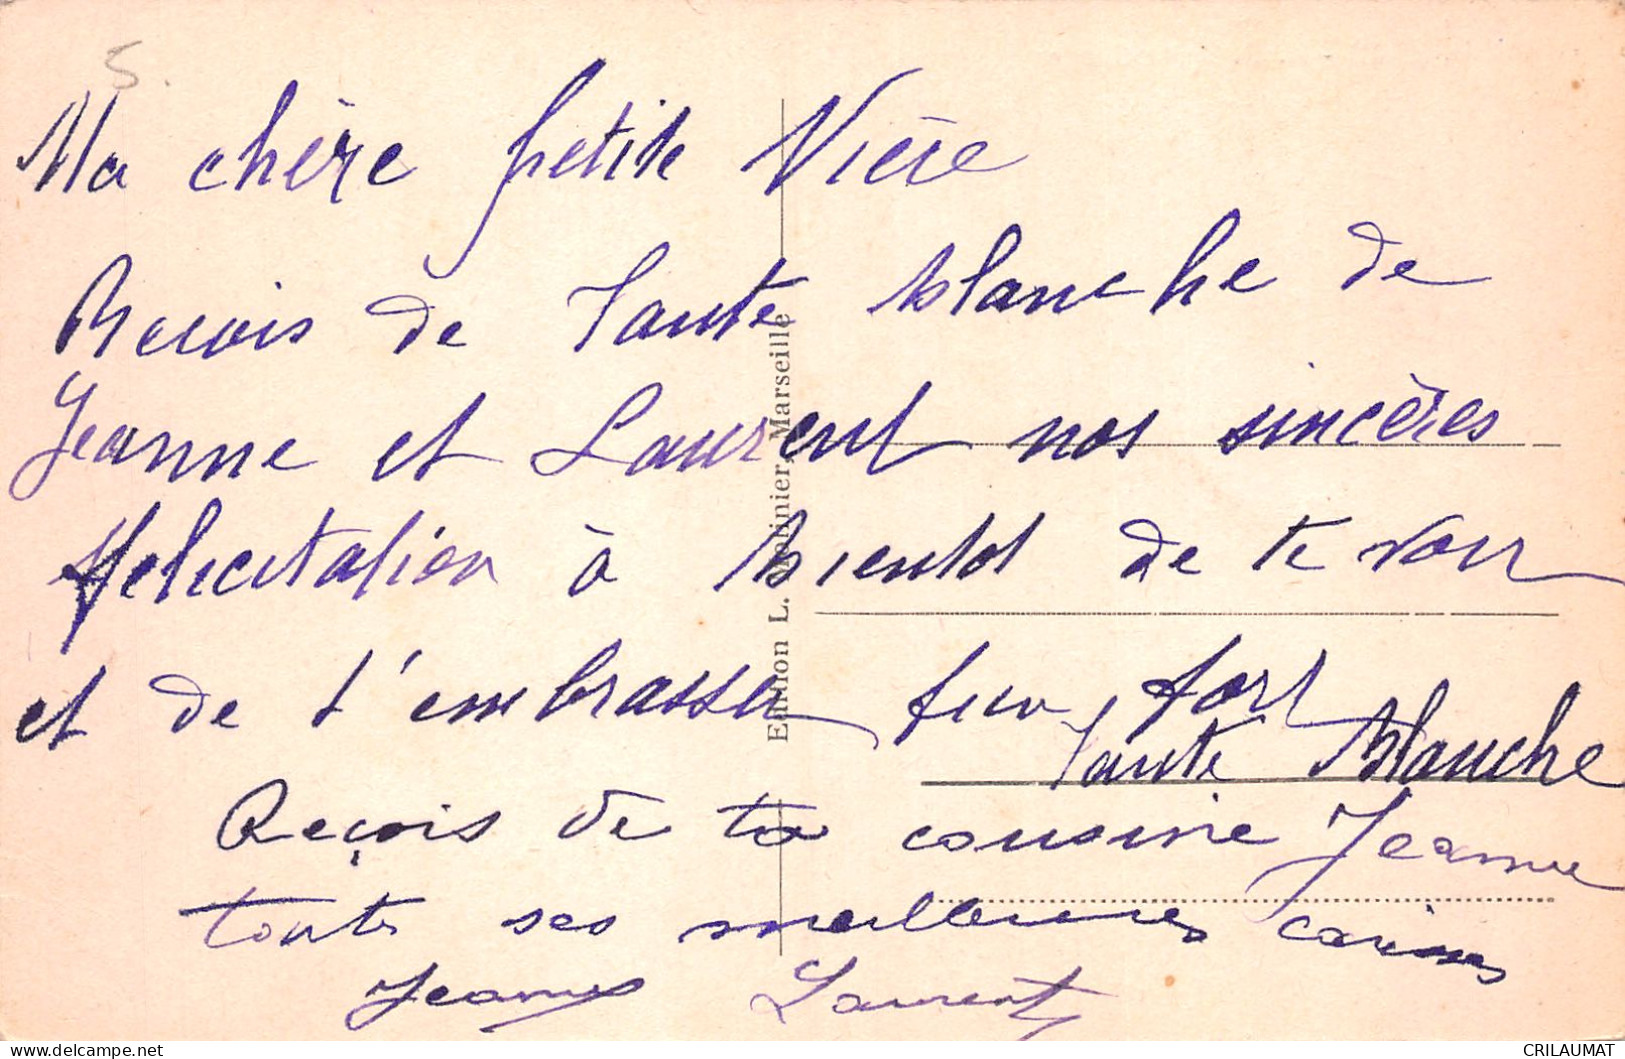 5.
Ma chère petite
Recois de Tante Blanche de
Jeanne et Laurent nos sincères
felicitation à Bientot de te voir
et de t'embrasser bien fort
Tante Blanche
Reçois de ta cousine Jeanne
toute ses meilleures
Jeanne Laurent
Edition L. Marseille
www.delcampe.net
CRILAUMAT